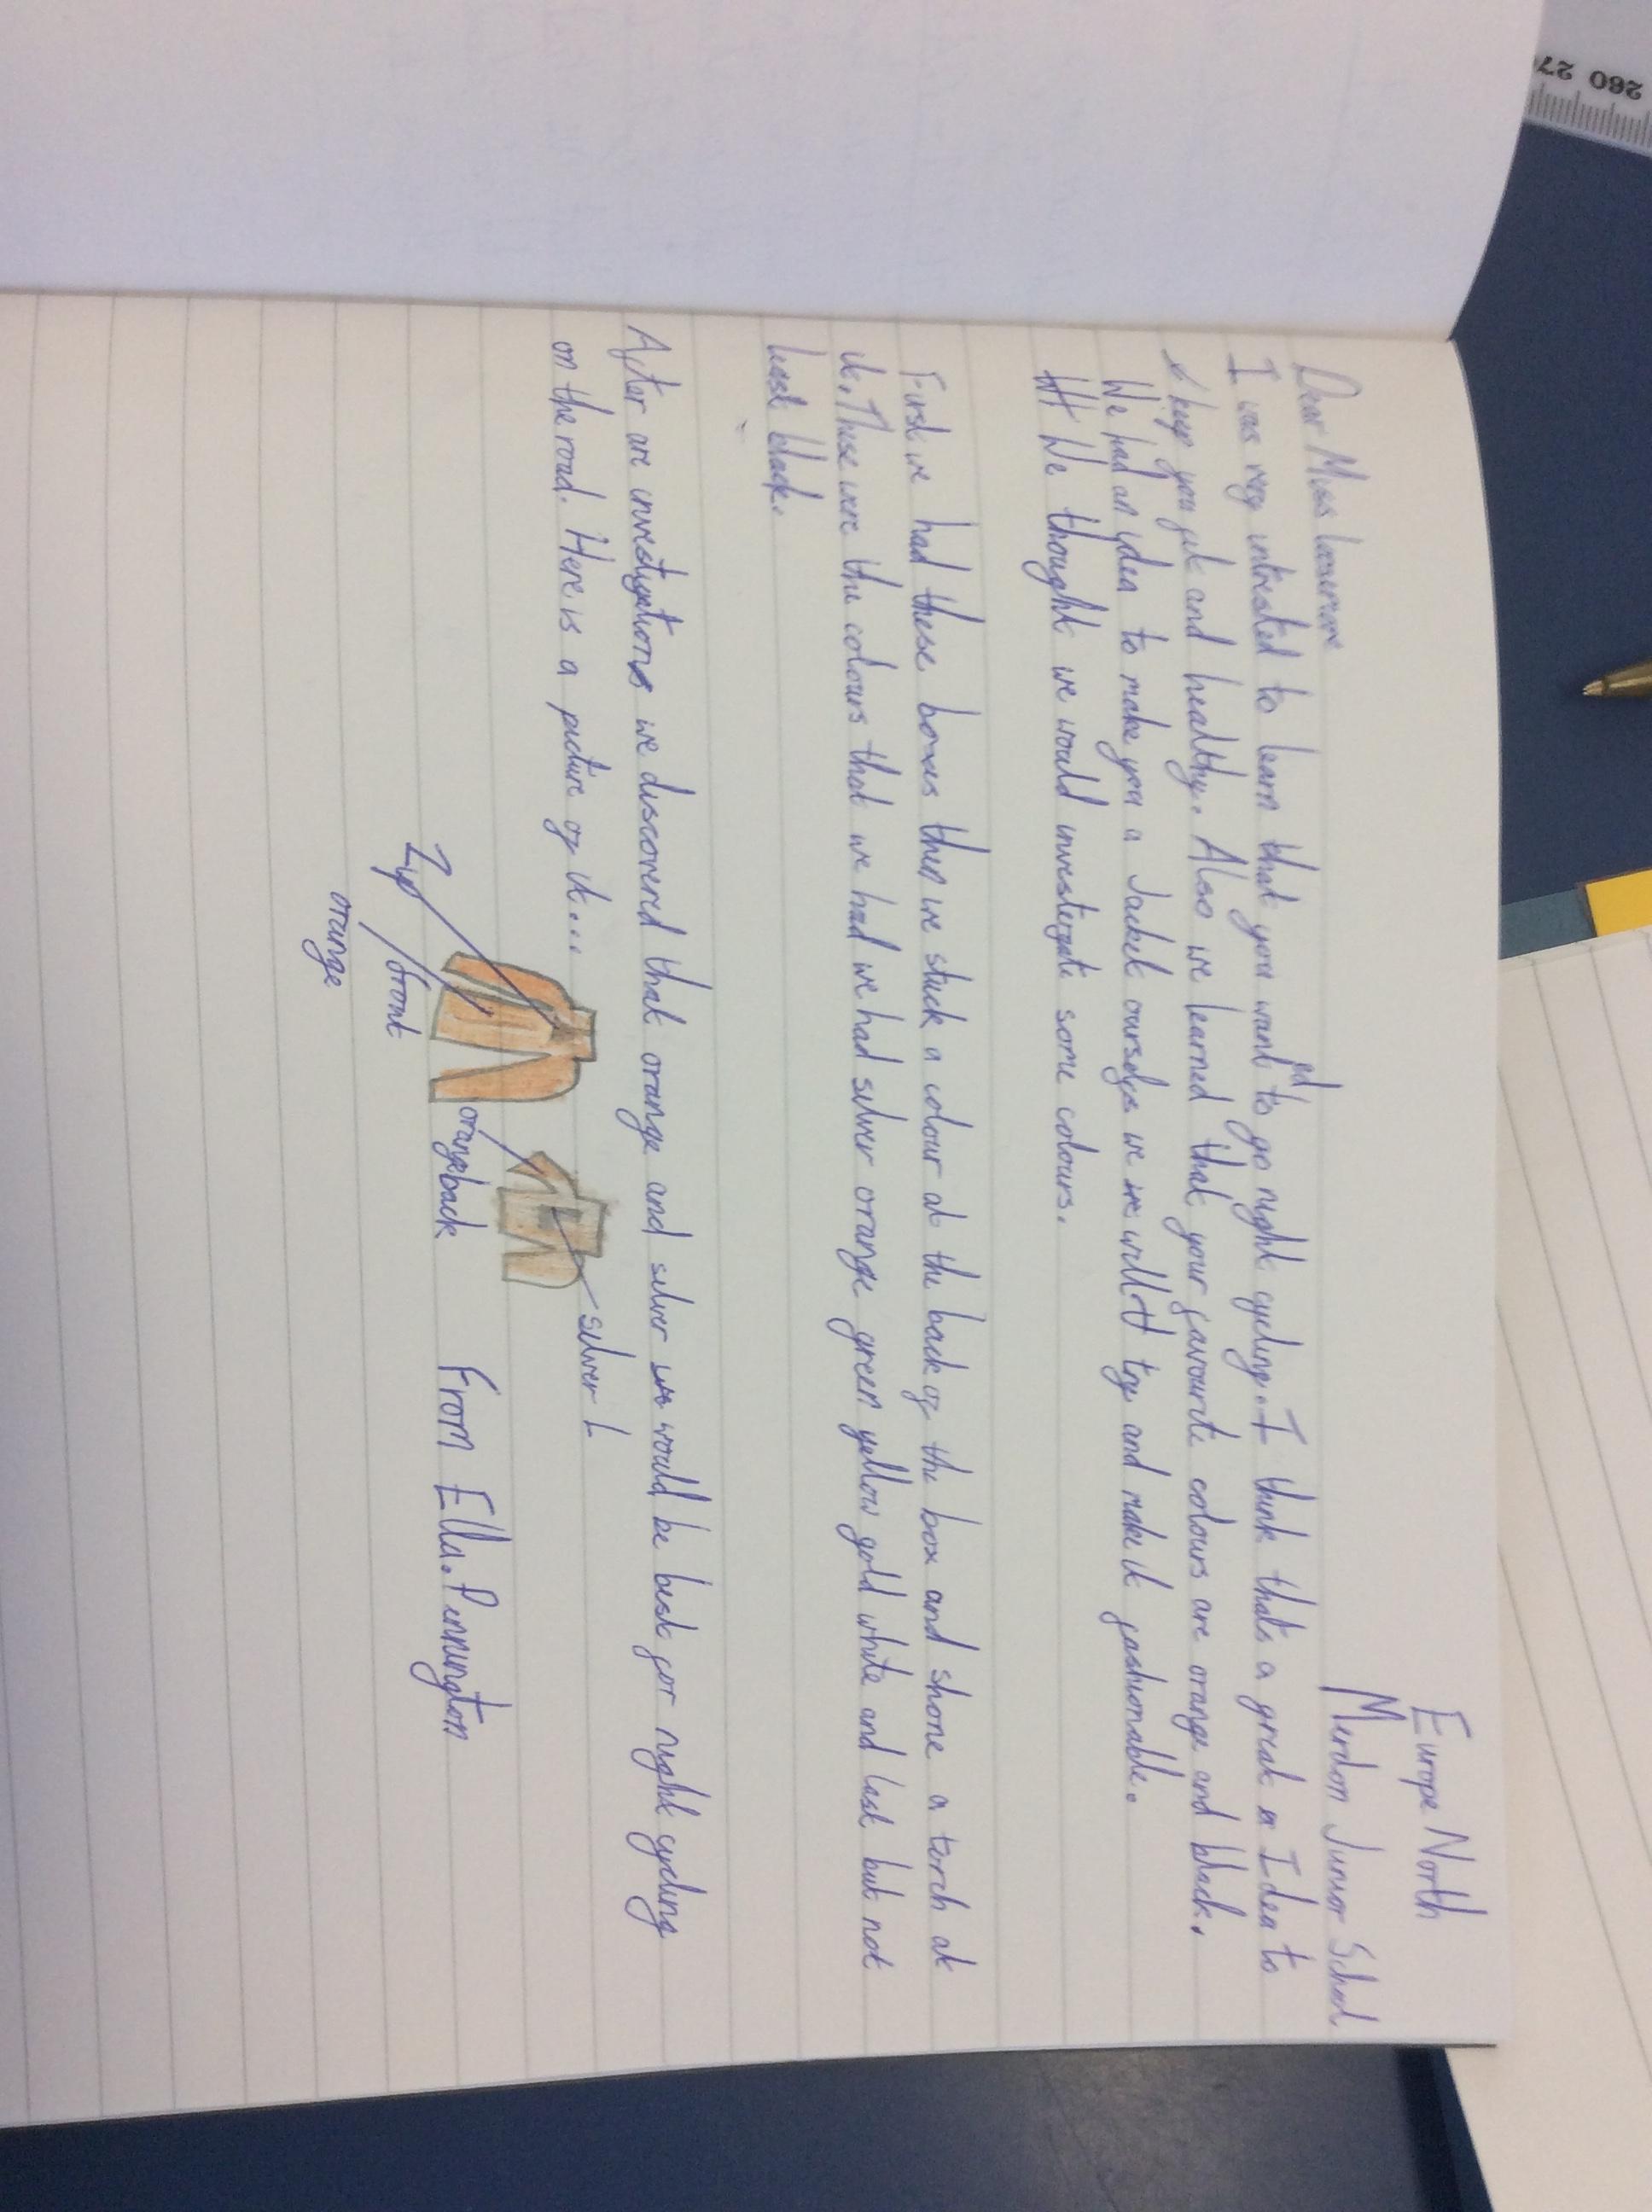 Europe North
Merdon Junior School
Dear Miss
I was very intrested to learn that you wanted to go night cycling. I think thats a great Idea to
keep you fit and healthy. Also we learned that your favourite colours are orange and black.
We had an idea to make you a Jacket ourselys we will try and make it fashionable.
We thought we would investigate some colours.
First we had these boxes then we stuck a colour at the back of the box and shone a torch at
it. These were the colours that we had we had silver orange green yellow gold white and last but not
least black.
After are investigations we discovered that orange and silver would be best for night cycling
on the road. Here is a picture of it...
silver!
Zip
front
orange
back
orange
From Ella. Pennington
260 27